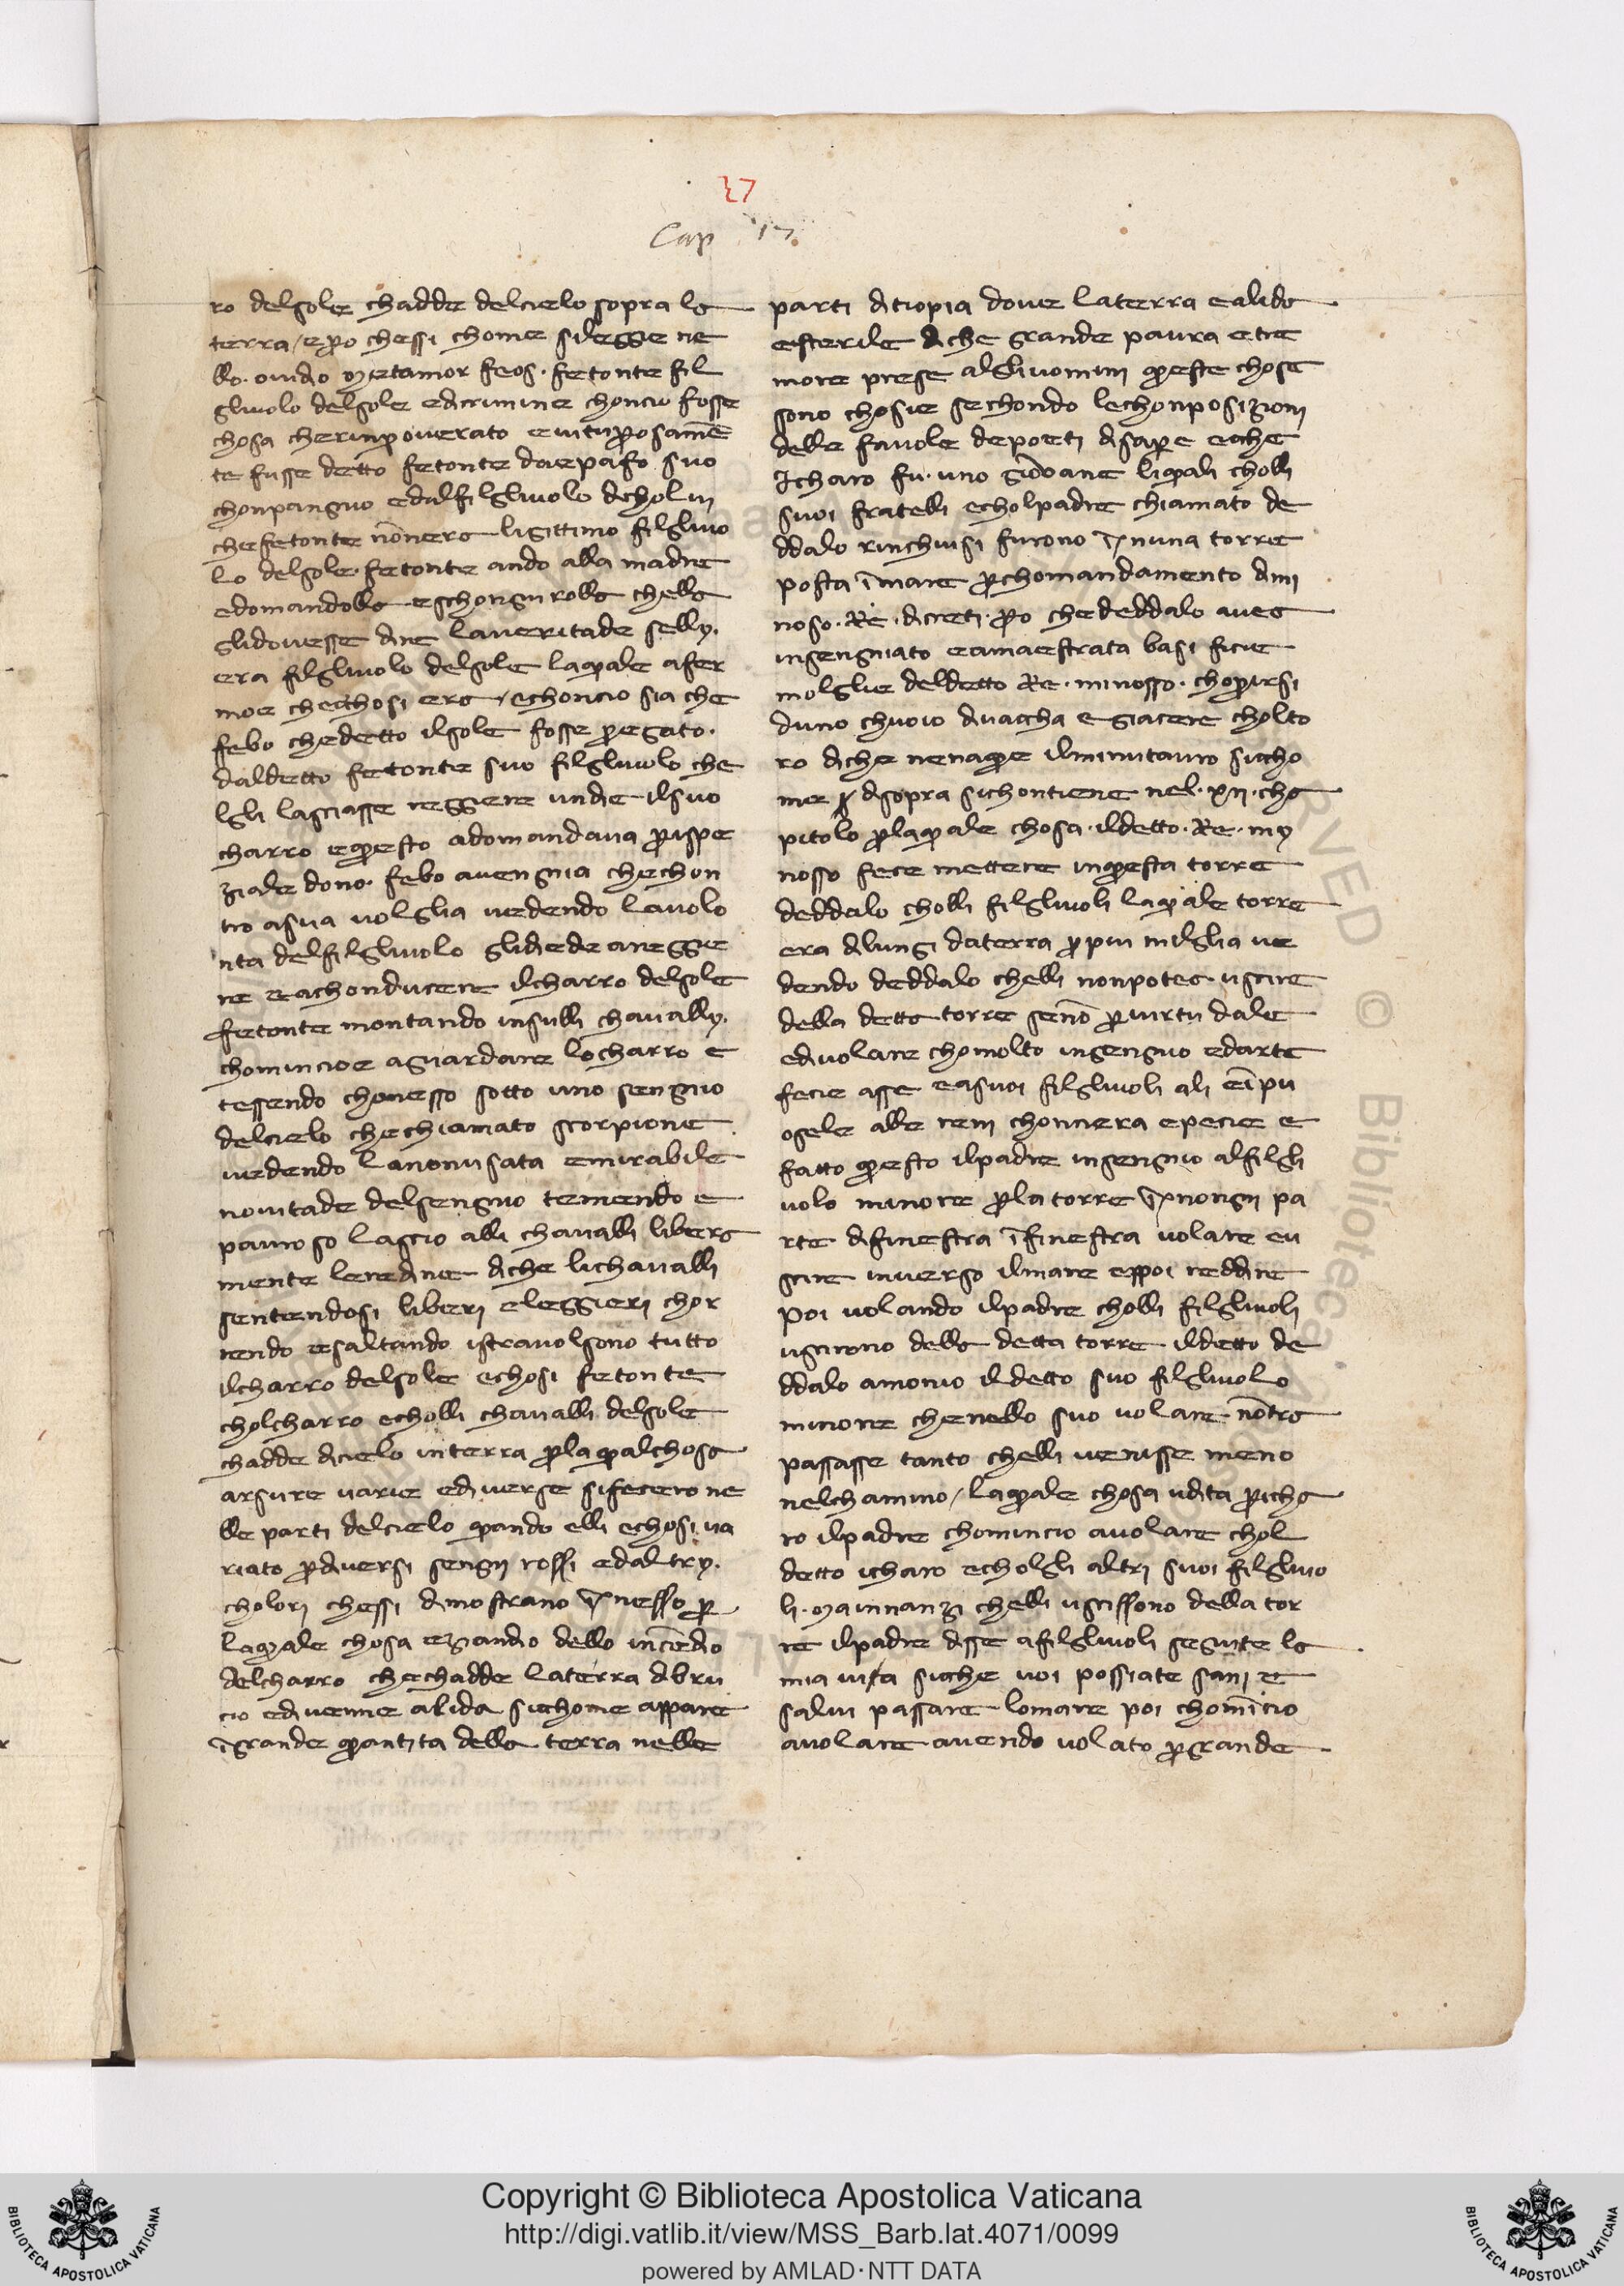 17
Cap 17
ro del sole chadde delcielo sopra la
terra / epero chessi chome silegge ne
llo. ouidio Metamor feos. fetonte fil
gliuolo delsole edicrimine choncio fosse
chosa cherinproverato e vituperosamē
te fusse detto fetonte daepafo suo
chonpangnio edalfilgliuolo dicholui
chefetonte nōnera ligittimo filgliuo
lo delsole. fetonte ando alla madre
edomandolla eschongiurolla chella
glidovesse dire laveritade selly.
era filgliuolo delsole laquale afer
moe chechosi era / echoncio sia che
febo chedetto ilsole fosse pregato.
daldetto fetonte suo filgliuolo che
lgli lasciasse reggere undie ilsuo
charro equesto adomandava perispe
ziale dono. febo avengnia chechon
tro asua volglia vedendo lavolo
nta delfilgliuolo gliediede aregge
re e achonducere ilcharro delsole
fetonte montando insulli chavally.
chomincioe aguardare locharro e
tessendo chomesso sotto uno sengnio
delcielo chechiamato scorpione
vedendo lanonusata emirabile
novitade delsengnio temendo e
pauroso lascio alli chavalli libera
mente leredine diche lichavalli
sentendosi liberi eleggieri chor
rendo esaltando istravolsono tutto
ilcharro delsole echosi fetonte
cholcharro echolli chavalli delsole
chadde dicielo interra perlaqualchosa
arsure varie ediverse sifecero ne
lle parti delcielo quando elli echosi va
riato perdiversi sengni rossi edaltry.
cholori chessi dimostrano īnesso per
laquale chosa eziandio dello incēdio
delcharro chechadde laterra abru
cio edivenne alida sicchome appare
īgrande quantita della terra nelle
parti ditiopia dove laterra ealida
esterile diche grande paura e tre
more prese algliuomini queste chose
sono chosie sechondo lechonposizioni
delle favole depoeti disapere eche
Icharo fu. uno giovane liquali cholli
suoi fratelli echolpadre chiamato de
ddalo rinchiusi furono īnuna torre
posta īmare perchomandamento dimi
noso. Re. dicreti. pero chededdalo avea
insengniato eamaestrata basi ficie
molglie deldetto Re. minosso. choprirsi
duno chuoio divaccha e giacere choltо
ro diche nenaque ilminutauro sicho
me disopra sichontiene nel. xii. cha
pitolo perlaquale chosa. ildetto. Re. my
nosso fece mettere inquesta torre
deddalo cholli filgliuoli laquale torre
era dilungi daterra perpiu milglia ve
dendo deddalo chelli nonpotea uscire
della detta torre senō pervirtu dale
edivolare chomolto ingengnio edarte
fecie asse easuoi filgliuoli ali eīpu
osele alle reni chonciera epecie e
fatto questo ilpadre insengnio alfilgli
uolo minore perla torre īnongni pa
rte difinestra īfinestra volare eu
scire inverso ilmare eppoi reddire
Poi volando ilpadre cholli filgliuoli
uscirono della detta torre ildetto de
ddalo amonio ildetto suo filgliuolo
minore chenello suo volare. nōtra
passasse tanto chelli venisse meno
nelchamino / laquale chosa udita pericha
ro ilpadre chomincio avolare chol
detto icharo echolgli altri suoi filgliuo
li. Mainnanzi chelli uscissono della tor
re ilpadre disse afilgliuoli seguite la
mia vita sicche voi possiate sani e
salvi passare lomare poi chomīcio
avolare avendo volato pergrande
Copyright © Biblioteca Apostolica Vaticana
http://digi.vatlib.it/view/MSS_Barb.lat.4071/0099
powered by AMLAD·NTT DATA
BIBLIOTECA APOSTOLICA VATICANA
BIBLIOTECA APOSTOLICA VATICANA